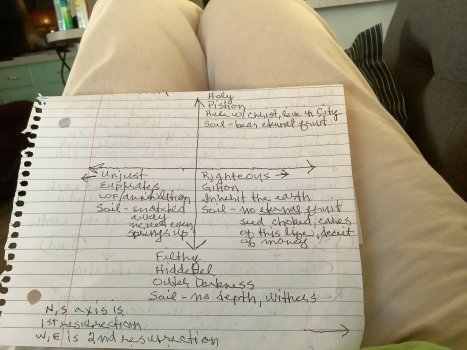 Holy
Pishon
Rule w/ Christ, live in City
Soil - bear eternal fruit
Unjust
Euphrates
LOF/annihilation
Soil - snatched
away
never even
springs up
Righteous
Gihon
Inherit the earth
Soil - no eternal fruit
seed choked, cares
of this life, deceit
of money
Filthy
Hiddekel
Outer Darkness
Soil - no depth, withers
N,S axis is
1st resurrection
W,E is 2nd resurrection